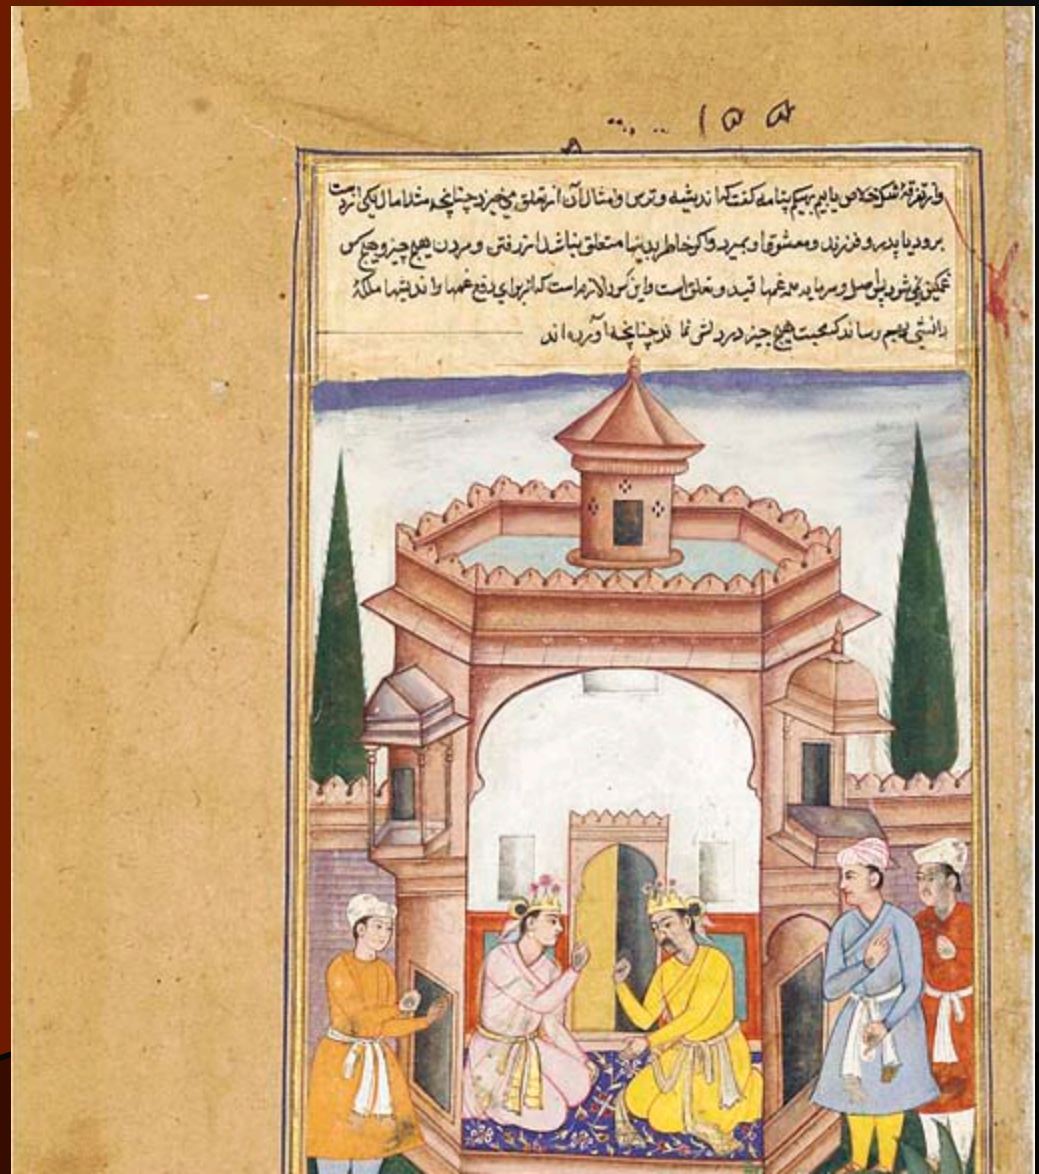 واز تفرقهٔ شک خلاص یابیم بهیکم پتامه گفت که اندیشه و ترس و امثال آن از تعلق می‌خیزد چنانچه مثلا مال یکی از دست
برود یا پدر و فرزند و معشوق او بمیرد و اگر خاطر بدینها متعلق نباشد از رفتن و مردن هیچ چیز و هیچ کس
غمگین نمی‌شود پس اصل و سرمایه همه غمها قید و تعلق است و این کس را لازم است که از برای دفع غمها و اندیشها ملکهٔ
دانشی بهم رساند که محبت هیچ چیز در دلش نماند چنانچه آورده‌اند